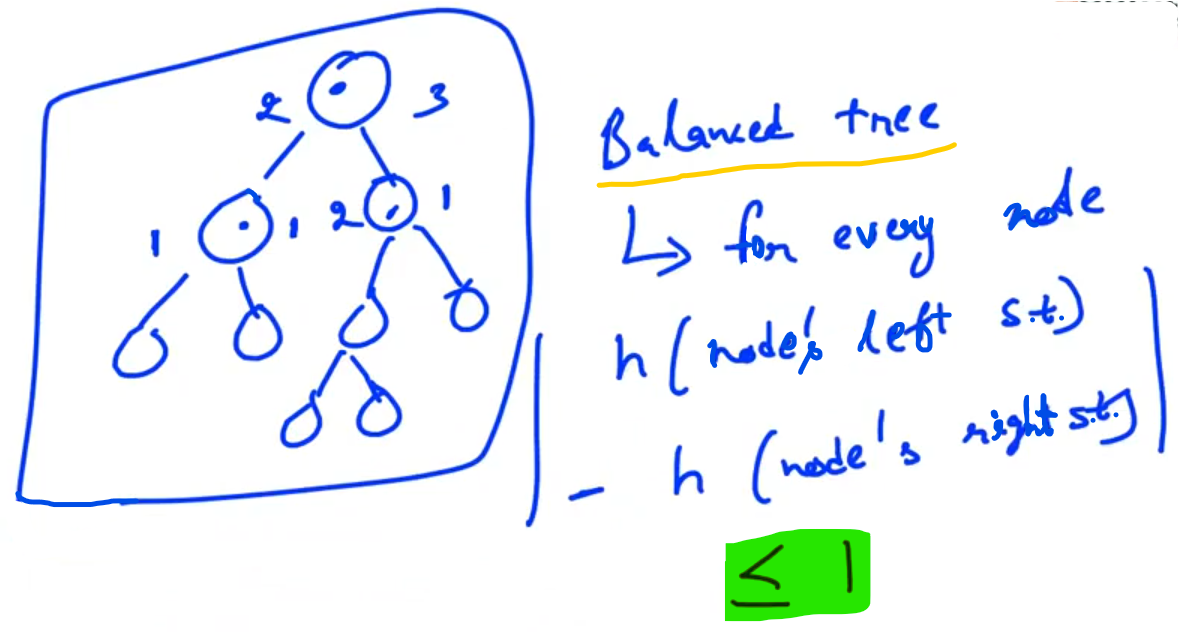 2 3
1 1 2 1
Balanced tree
↳ for every node
| h (node's left s.t.)
- h (node's right s.t.) |
≤ 1